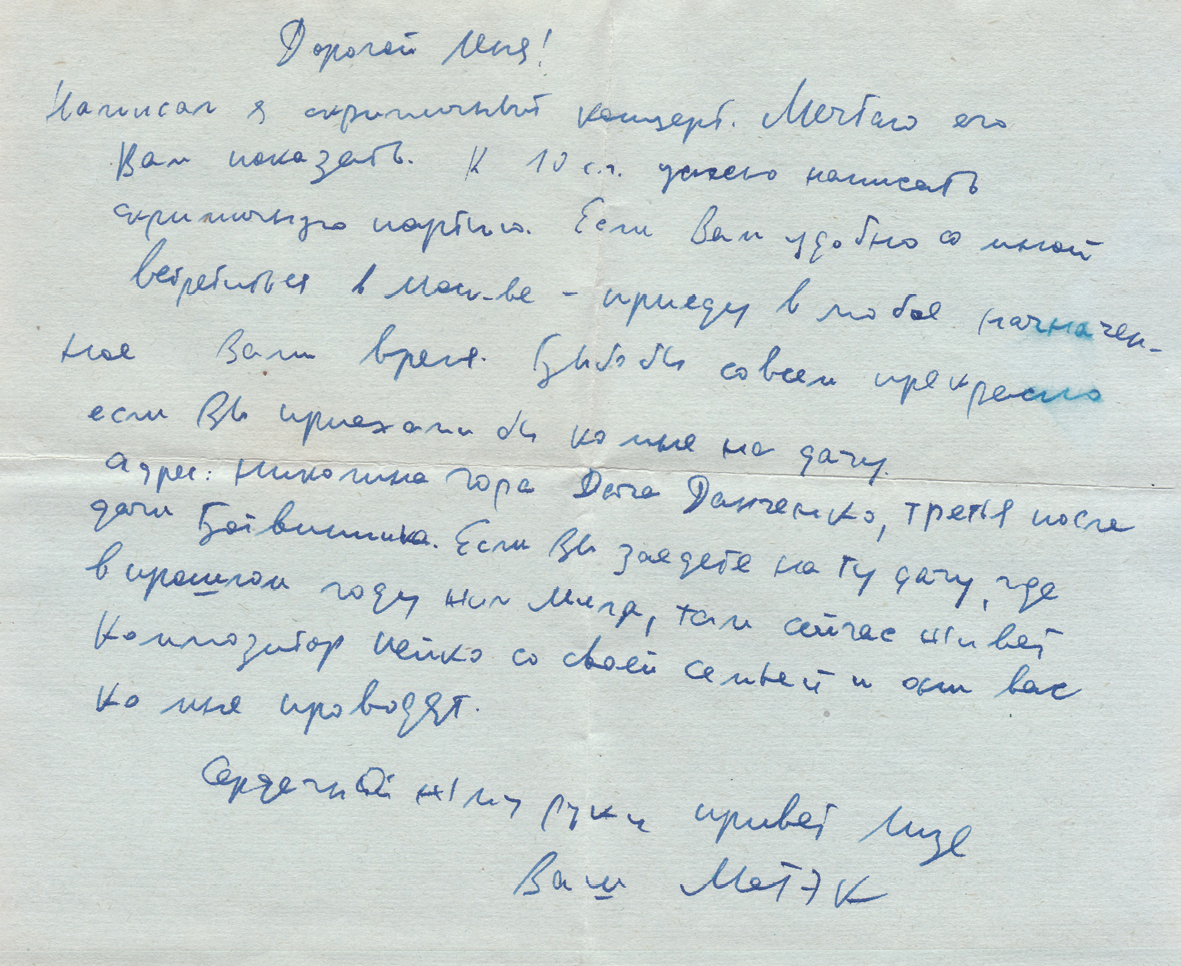 Дорогой Лёня!
Написал я скрипичный концерт. Мечтаю его
Вам показать. К 10 с.г. нужно написать
скрипичную партию. Если Вам удобно со мной
встретиться в Москве – приеду в любое назначен-
ное Вами время. Было бы совсем прекрасно
если Вы приехали бы ко мне на дачу.
Адрес: Николина гора Дача Данченко, третья после
дачи Ботвинника. Если Вы заедете на ту дачу, где
в прошлом году жил Мира, там сейчас живет
Композитор Пейко со своей семьей и они вас
ко мне проводят.
Сердечный жму руки привет Лизе
Ваш Метэк